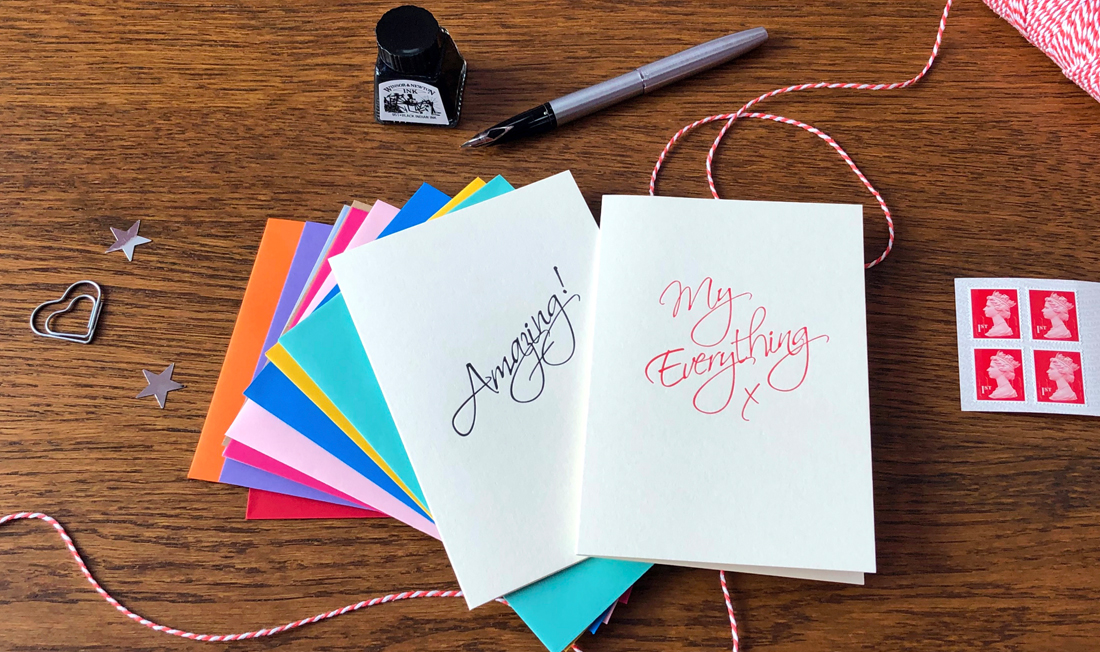 WINSOR & NEWTON
INK
Amazing!
My
Everything
x
1ST
1ST
1ST
1ST